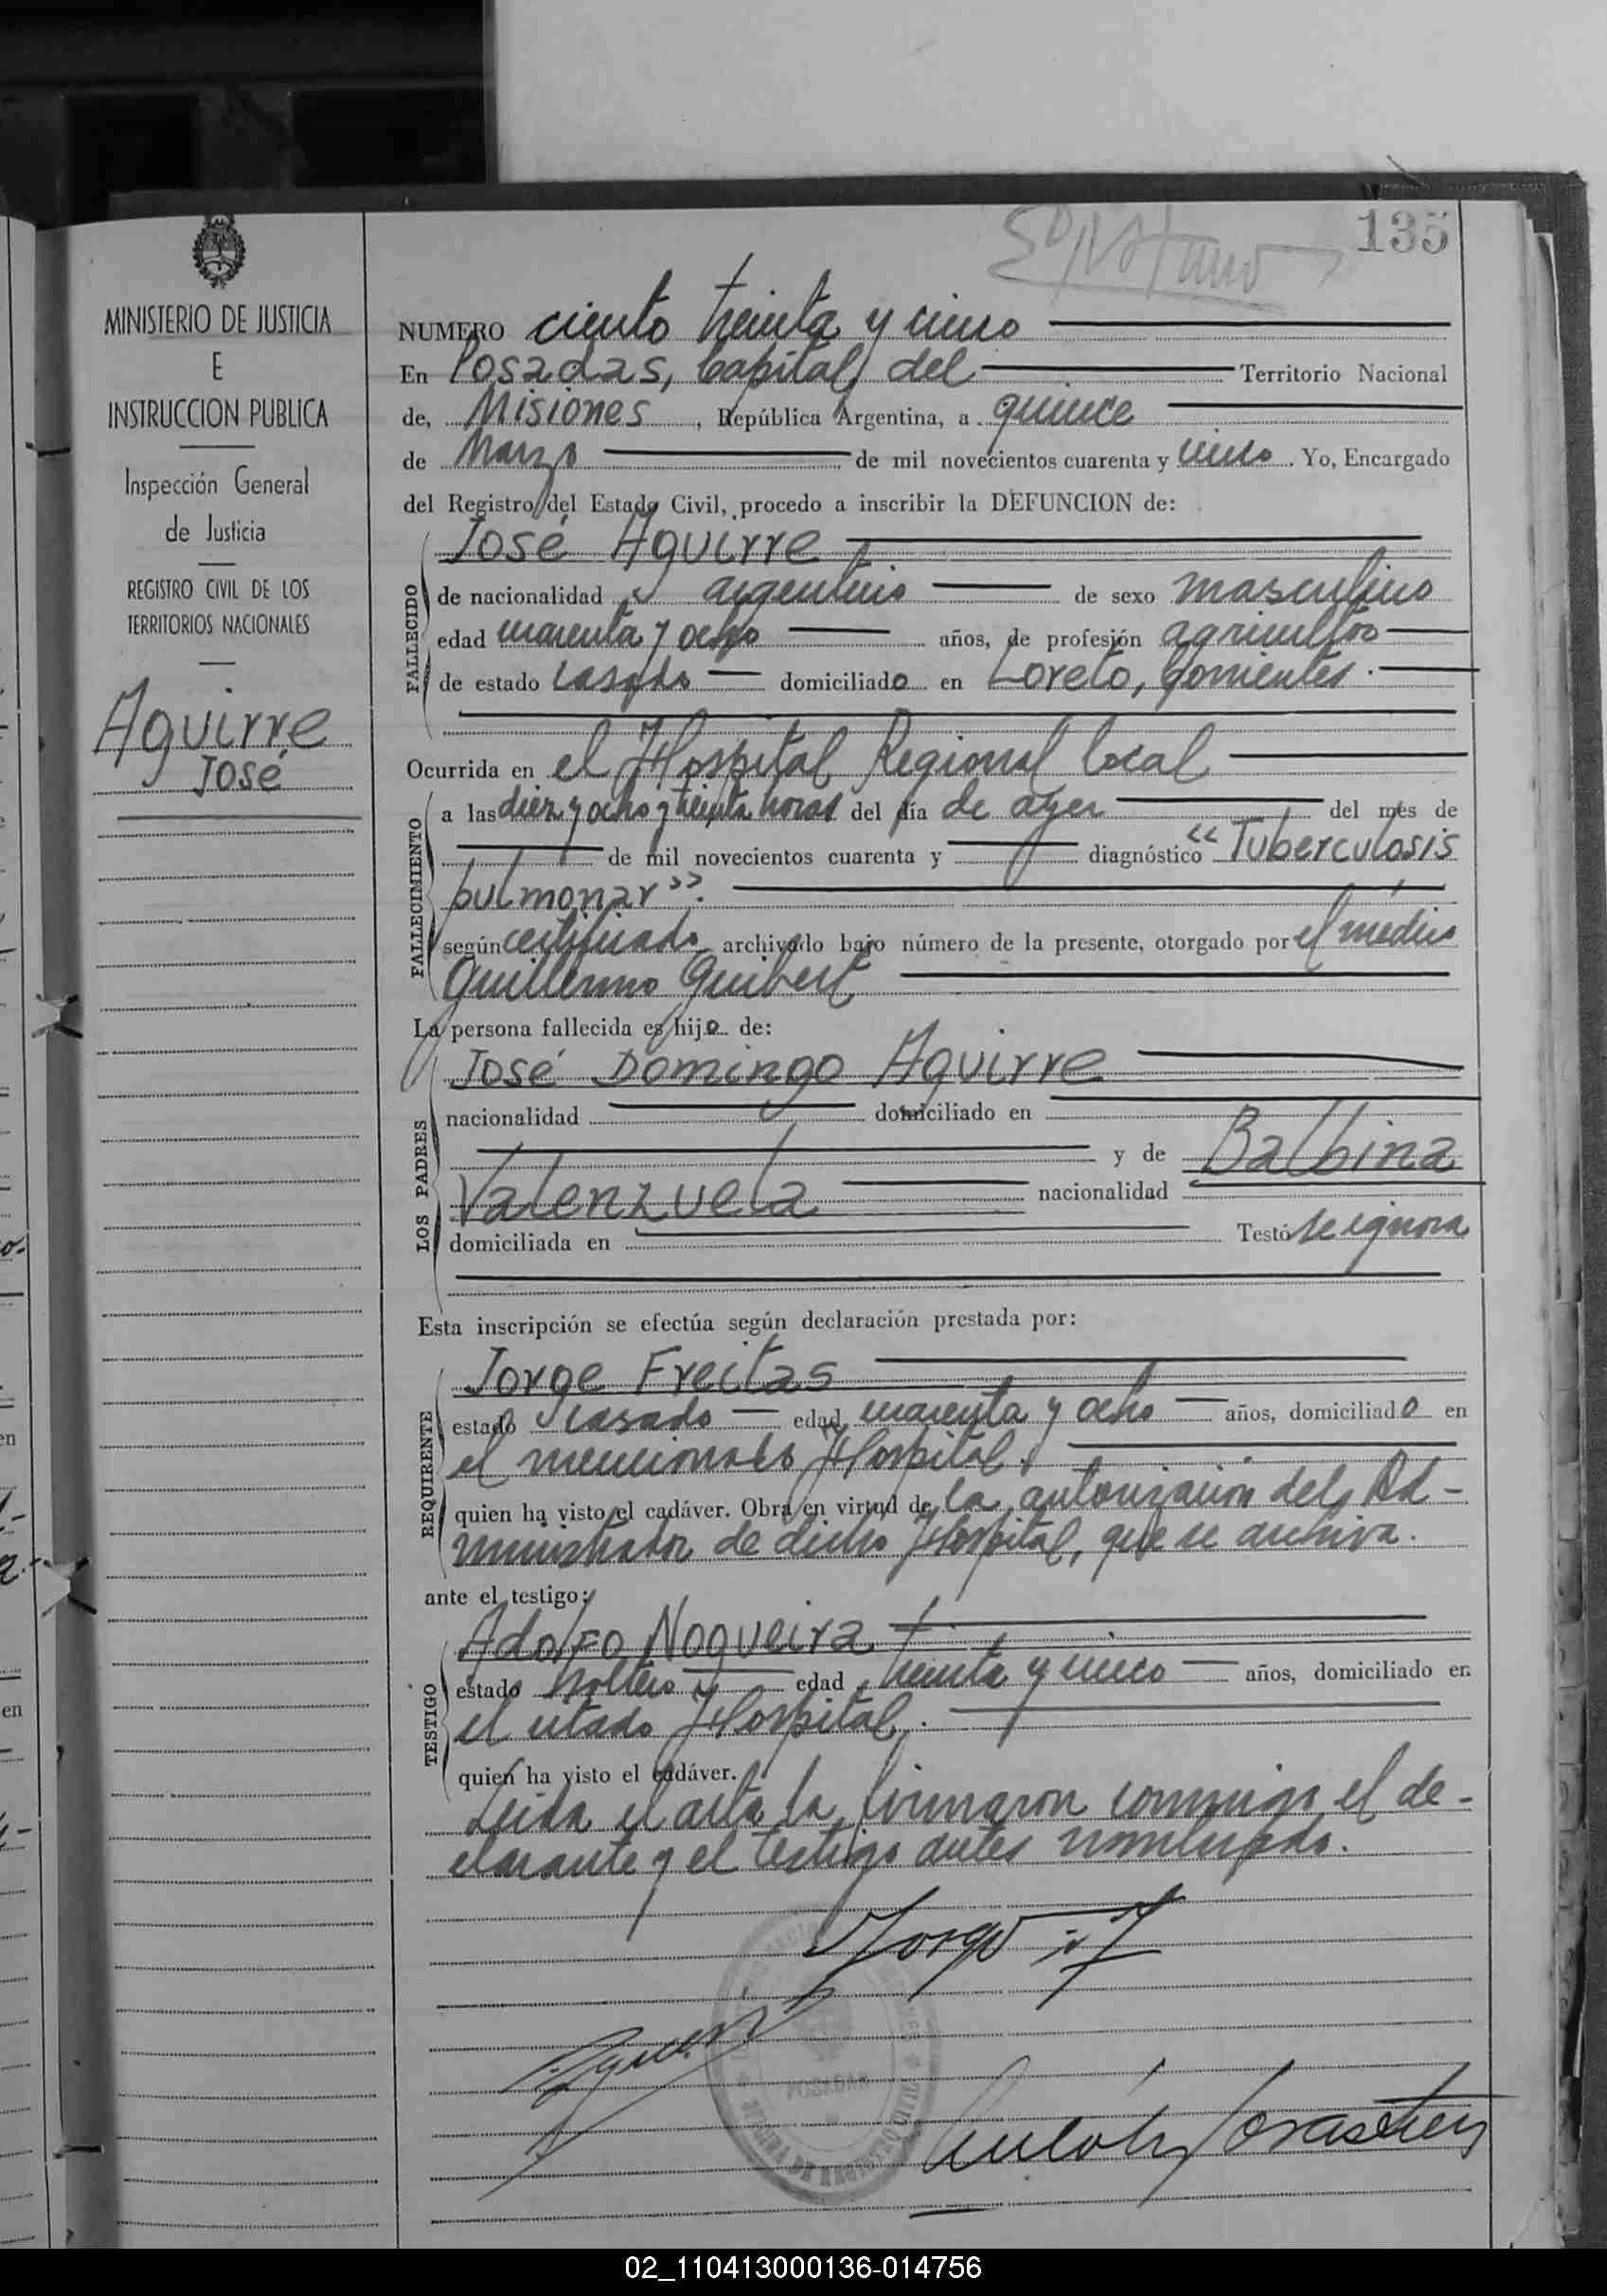 135
MINISTERIO DE JUSTICIA
E
INSTRUCCION PUBLICA
Inspección General
de Justicia
REGISTRO CIVIL DE LOS
TERRITORIOS NACIONALES
Aguirre
José
NUMERO ciento treinta y cinco
En Posadas, Capital del Territorio Nacional
de, Misiones, República Argentina, a quince
de Marzo de mil novecientos cuarenta y cinco. Yo, Encargado
del Registro del Estado Civil, procedo a inscribir la DEFUNCION de:
FALLECIDO
José Aguirre
de nacionalidad argentino de sexo masculino
edad cuarenta y ocho años, de profesión agricultor
de estado casado domiciliado en Loreto, Corrientes.
Ocurrida en el Hospital Regional local
FALLECIMIENTO
a las diez y ocho y treinta horas del día de ayer del mes de
de mil novecientos cuarenta y diagnóstico "Tuberculosis
pulmonar".
según certificado archivado bajo número de la presente, otorgado por el médico
Guillermo Guibert
La persona fallecida es hijo de:
LOS PADRES
José Domingo Aguirre
nacionalidad domiciliado en
y de Balbina
Valenzuela nacionalidad
domiciliada en Testó se ignora
Esta inscripción se efectúa según declaración prestada por:
REQUIRENTE
Jorge Freitas
estado casado edad cuarenta y ocho años, domiciliado en
el mencionado Hospital.
quien ha visto el cadáver. Obra en virtud de la autorización del Ad-
ministrador de dicho Hospital, que se archiva.
ante el testigo:
TESTIGO
Adolfo Nogueira
estado soltero edad treinta y cinco años, domiciliado en
el citado Hospital.
quien ha visto el cadáver.
Leída el acta la firmaron conmigo el de-
clarante y el testigo antes nombrado.
Jorge
POSADAS
02_110413000136-014756